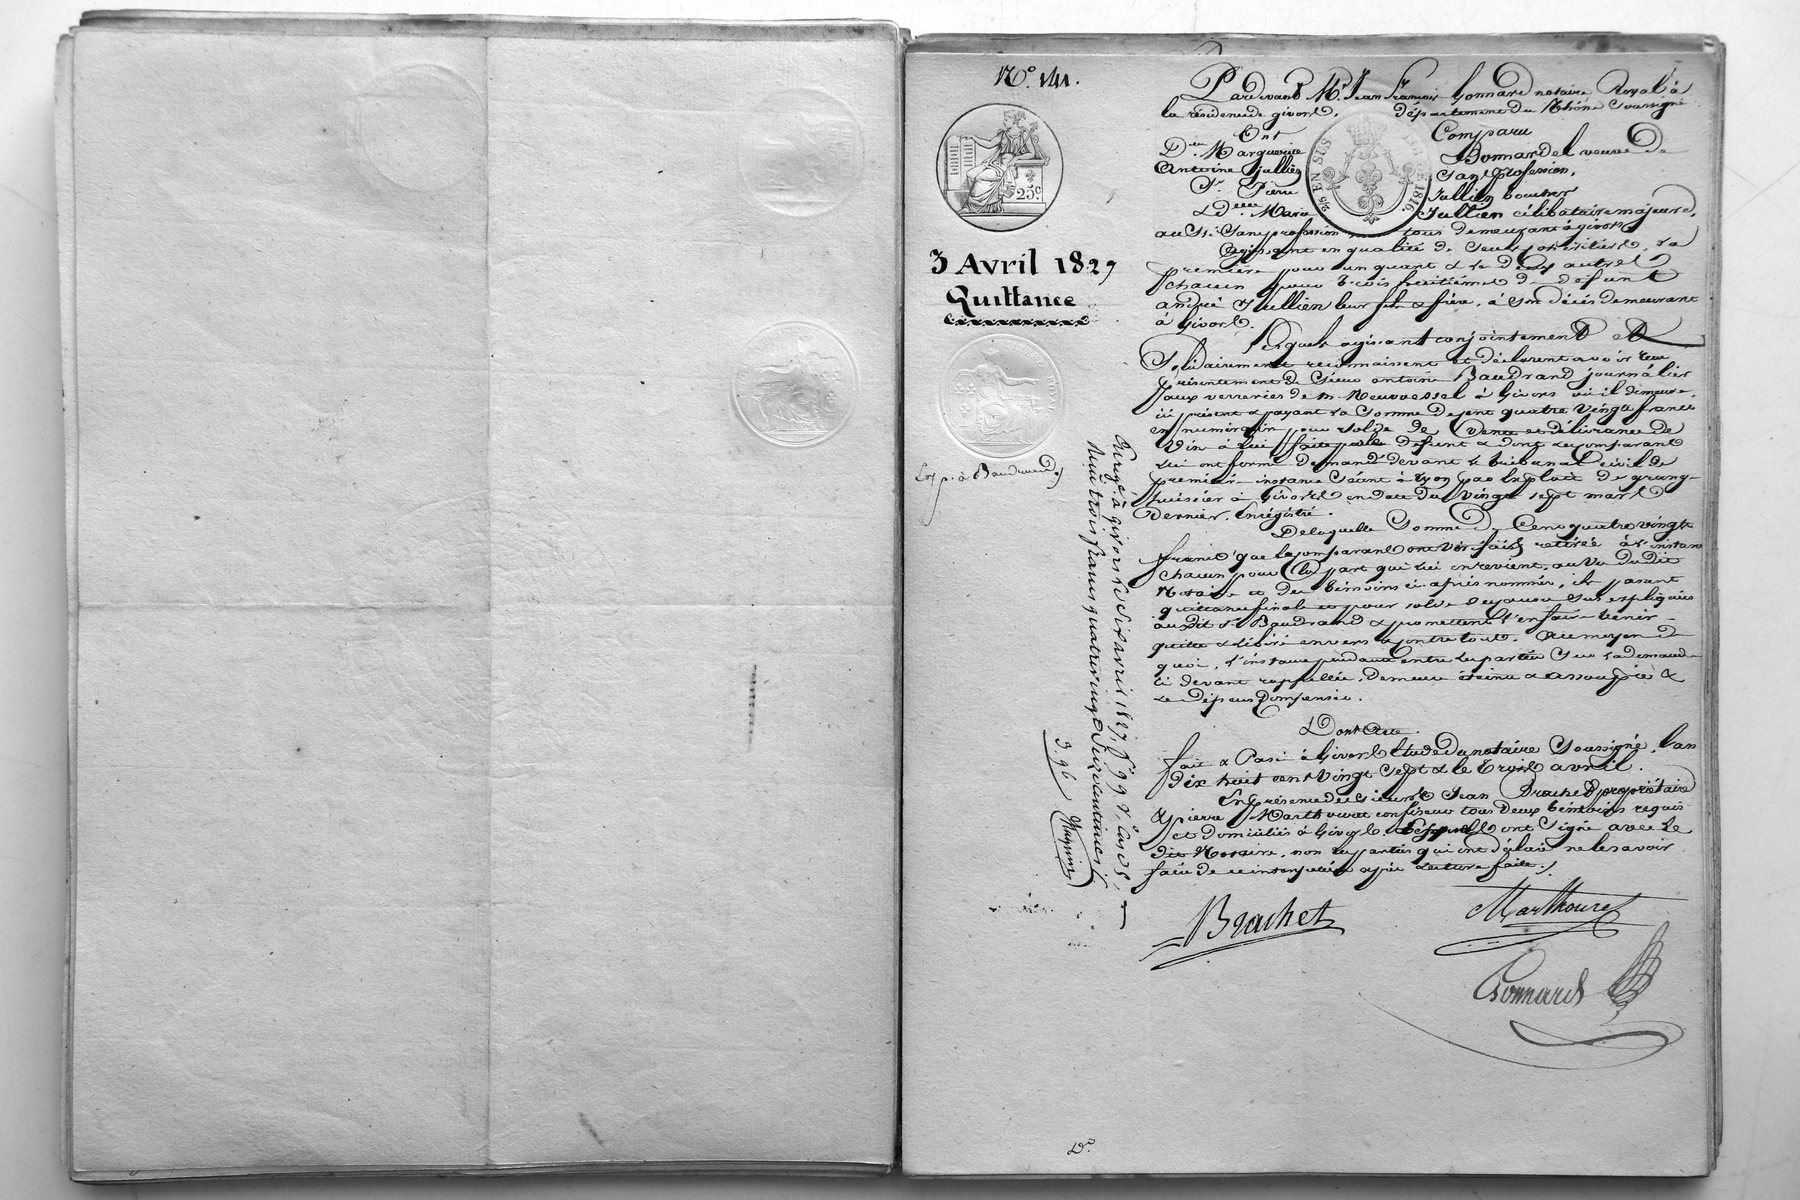 N.° 141.
25.c
3 Avril 1827
Quittance
Exp. à Baudrand
Pardevant M.e Jean François Gonnard notaire Royal à
la résidence de givors, département du Rhône soussigné
Ont Comparu
D.me Marguerite Bonnardel veuve de
Antoine Jullien sans profession,
S.r Pierre Jullien boucher
& D.elle Marie Jullien célibataire majeure,
aussi sans profession tous demeurant à givors
Agissant en qualité de seuls héritiers, la
première pour un quart & les deux autres
chacun pour trois huitièmes de défunt
andré Jullien leur fils & frère, à son décès demeurant
à Givors.
Lesquels agissant conjointement et
Solidairement reconnaissent et déclarent avoir reçu
présentement de Sieur antoine Baudrand journalier
aux verreries de m. Neuvessel à Givors où il demeure,
ici présent & payant la Somme de cent quatre vingt francs
en numéraire pour solde de Vente et délivrance de
Vin à lui faite par le défunt & dont les comparants
lui ont formé demande devant le tribunal Civil de
première instance séant à Lyon par Exploit de grang
huissier à Givors en date du vingt sept mars
dernier, Enrégistré.
De laquelle Somme de Cent quatre vingt
francs que les comparants ont retirée à l'instant
chacun pour la part qui lui en revient, au Vu dudit
Notaire et des témoins ci-après nommés, ils passent
quittance finale et pour solde des causes sus expliquées
audit S.r Baudrand & promettent l'en faire tenir
quitte & libéré envers & contre tout. Au moyen de
quoi, l'instance pendante entre les parties sur la demande
ci devant rappellée, demeure éteinte & assoupie &
les dépens compensés.
Dont Acte.
fait & Passé à Givors Etude du notaire Soussigné, l'an
dix huit cent Vingt sept & le trois avril.
En présence de Sieurs Jean Brachet propriétaire
& pierre Marthouret confiseur tous deux témoins requis
et domiciliés à Givors lesquels ont signé avec le
dit Notaire, non les parties qui ont déclaré ne le savoir
faire de ce interpellées après Lecture faite.
Enreg.é à givors le six avril 1827, f.° 99 v.° c.es
Reçu trois francs quatre vingt Seize centimes
3.96
Brachet
Marthouret
Gonnard
25 EN SUS
1816.
D.°